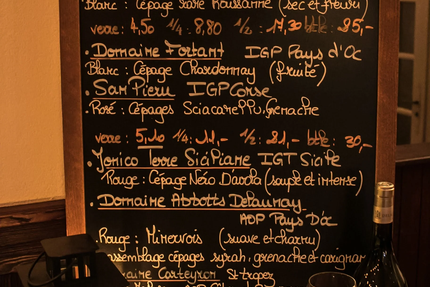 Blanc: Cépage Roussanne (sec et fleuri)
verre: 4,50 1/4: 8,80 1/2: 17,30 btle: 25,-
. Domaine Fortant IGP Pays d'Oc
Blanc: Cépage Chardonnay (fruité)
. San Pieru IGP Corse
Rosé: Cépages Sciacarellu, Grenache
verre: 5,10 1/4: 11,- 1/2: 21,- btle: 30,-
. Yonico Terre Siciliane IGT Sicile
Rouge: Cépage Nero D'avola (souple et intense)
. Domaine Abbotts Delaunay
AOP Pays D'oc
Rouge: Minervois (suave et charnu)
assemblage cépages syrah, grenache et carignan
Domaine St tropez